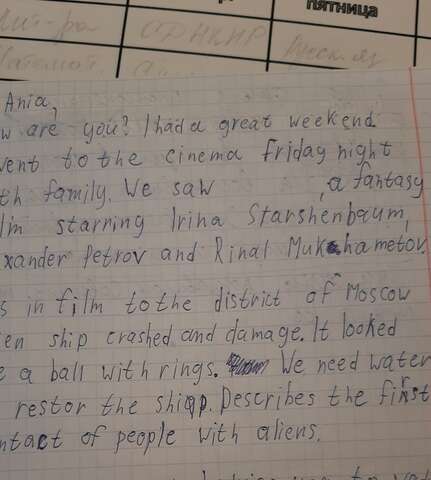 пятница
Ania,
are you? I had a great weekend.
to the cinema Friday night
family. We saw , a fantasy
starring Irina Starshenbaum,
xander Petrov and Rinal Mukhametov.
in film to the district of Moscow
en ship crashed and damage. It looked
a ball with rings. We need water
restor the ship. Describes the first
ntact of people with aliens.